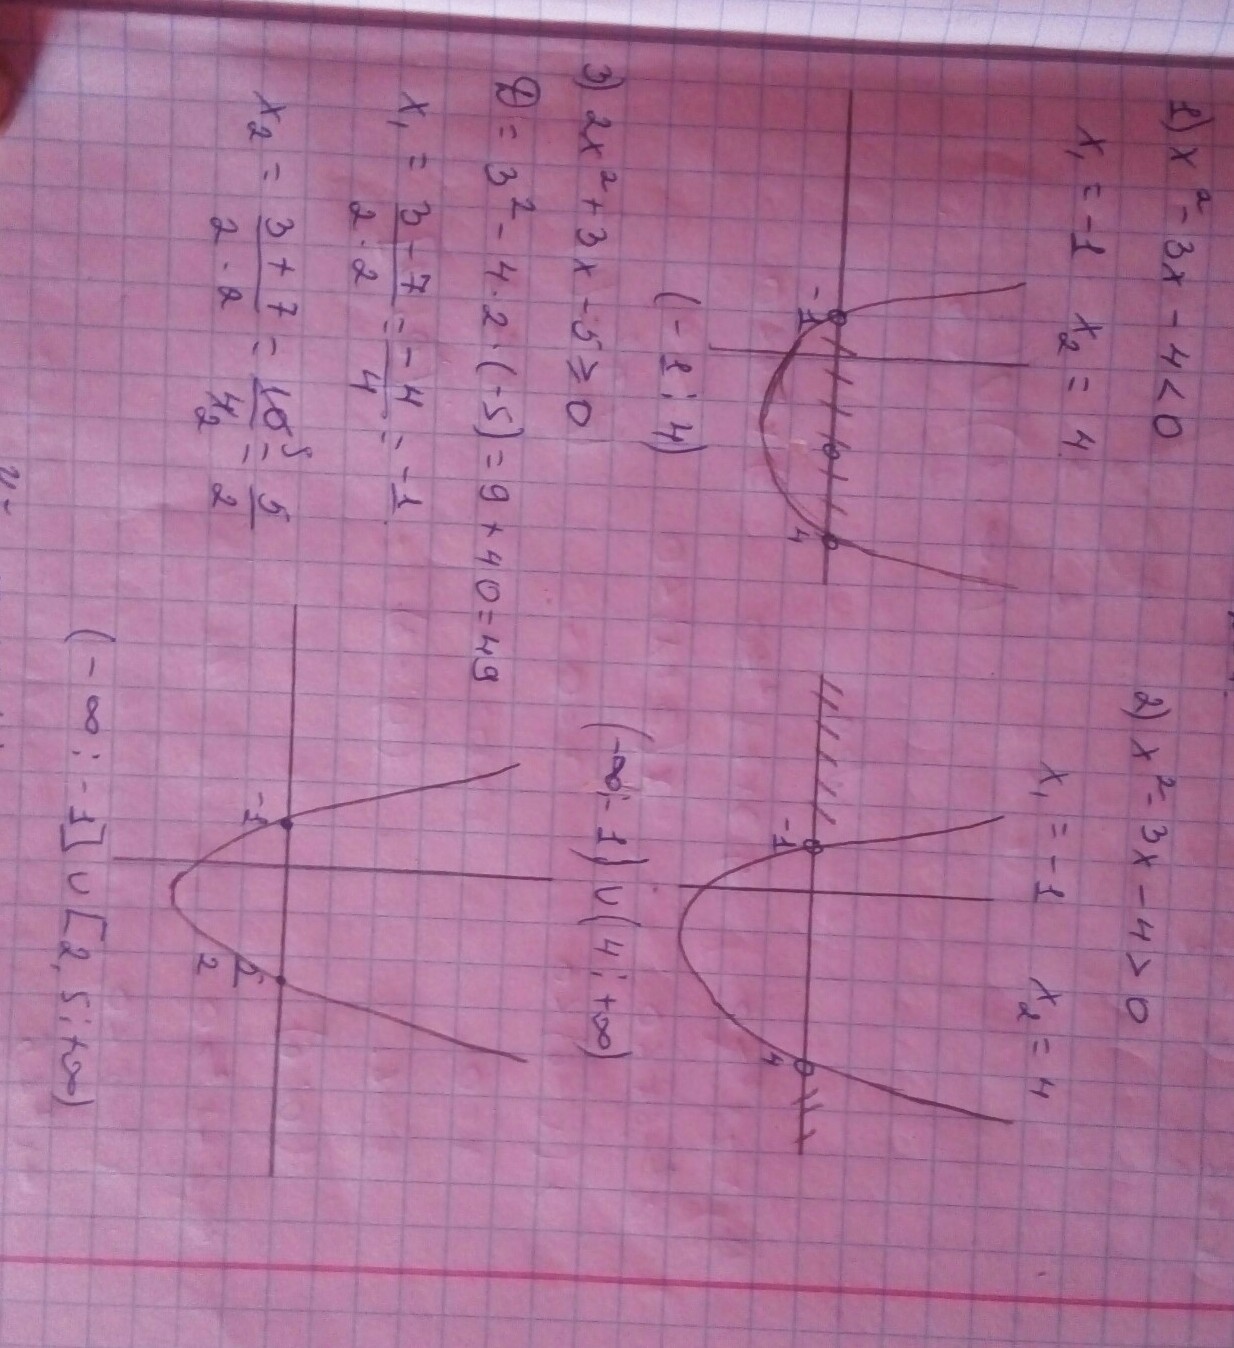 1) x² - 3x - 4 < 0
x₁ = -1 x₂ = 4
-1 4
(-1; 4)
2) x² - 3x - 4 > 0
x₁ = -1 x₂ = 4
-1 4
(-∞; -1) ∪ (4; +∞)
3) 2x² + 3x - 5 ≥ 0
D = 3² - 4·2·(-5) = 9 + 40 = 49
x₁ = (3 - 7)/(2·2) = -4/4 = -1
x₂ = (3 + 7)/(2·2) = 10⁵/4₂ = 5/2
-1 5/2
(-∞; -1] ∪ [2,5; +∞)